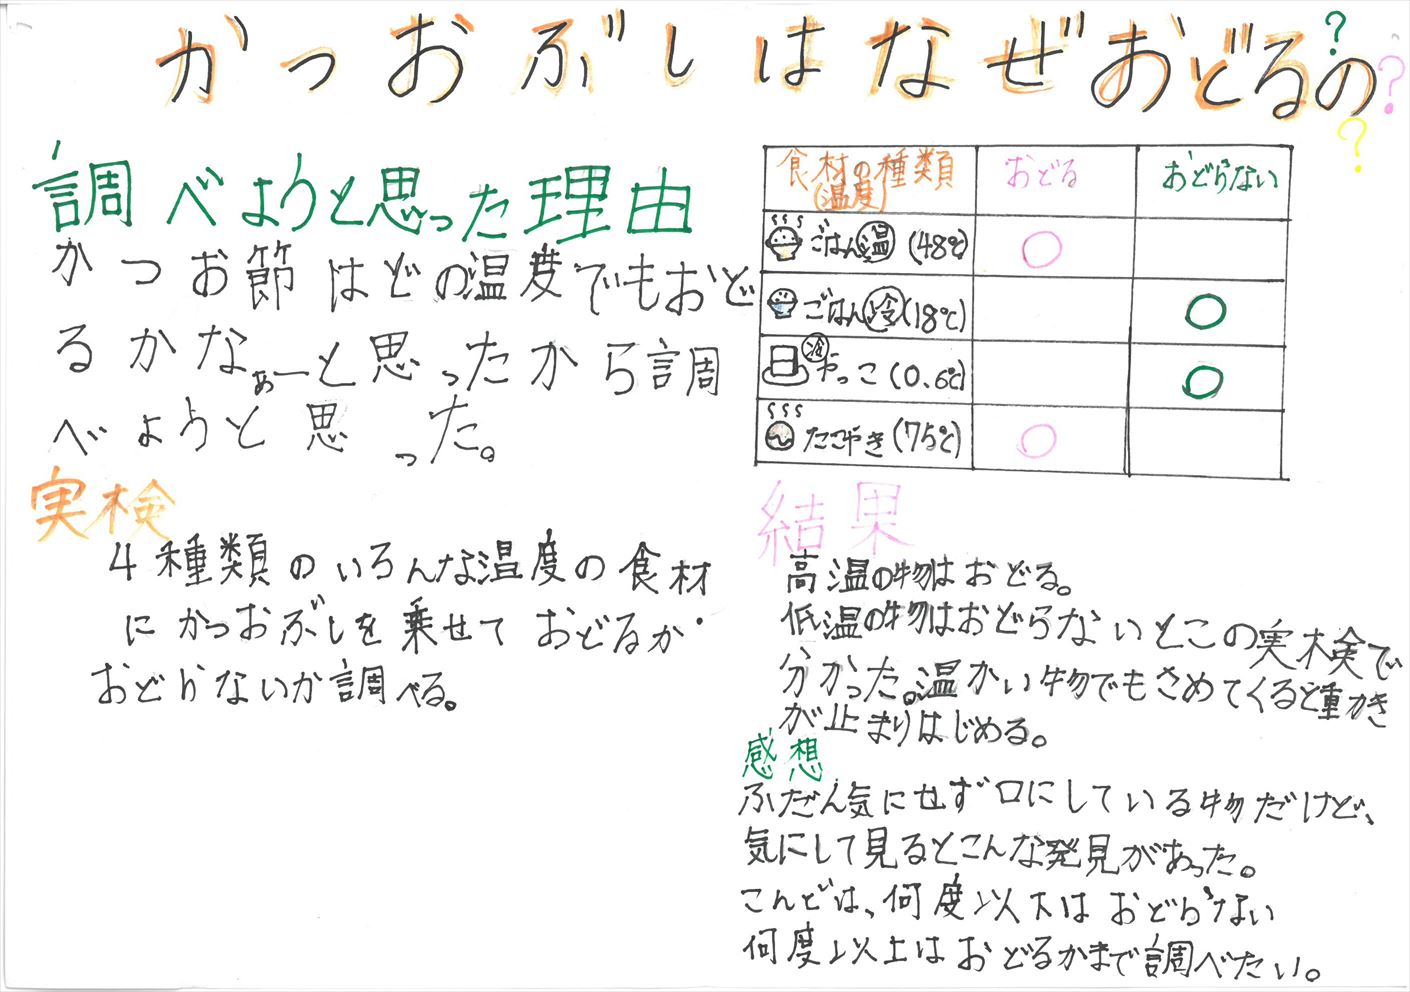 かつおぶしはなぜおどるの???
調べようと思った理由
かつお節はどの温度でもおど
るかなぁーと思ったから調
べようと思った。
実検
4種類のいろんな温度の食材
にかつおぶしを乗せておどるか・
おどらないか調べる。
食材の種類(温度) おどる おどらない
ごはん温(48℃) ○
ごはん冷(18℃) ○
冷やっこ(0.6℃) ○
たこやき(75℃) ○
結果
高温の物はおどる。
低温の物はおどらないとこの実検で
分かった。温かい物でもさめてくると動き
が止まりはじめる。
感想
ふだん気にせず口にしている物だけど、
気にして見るとこんな発見があった。
こんどは、何度以下はおどらない
何度以上はおどるかまで調べたい。